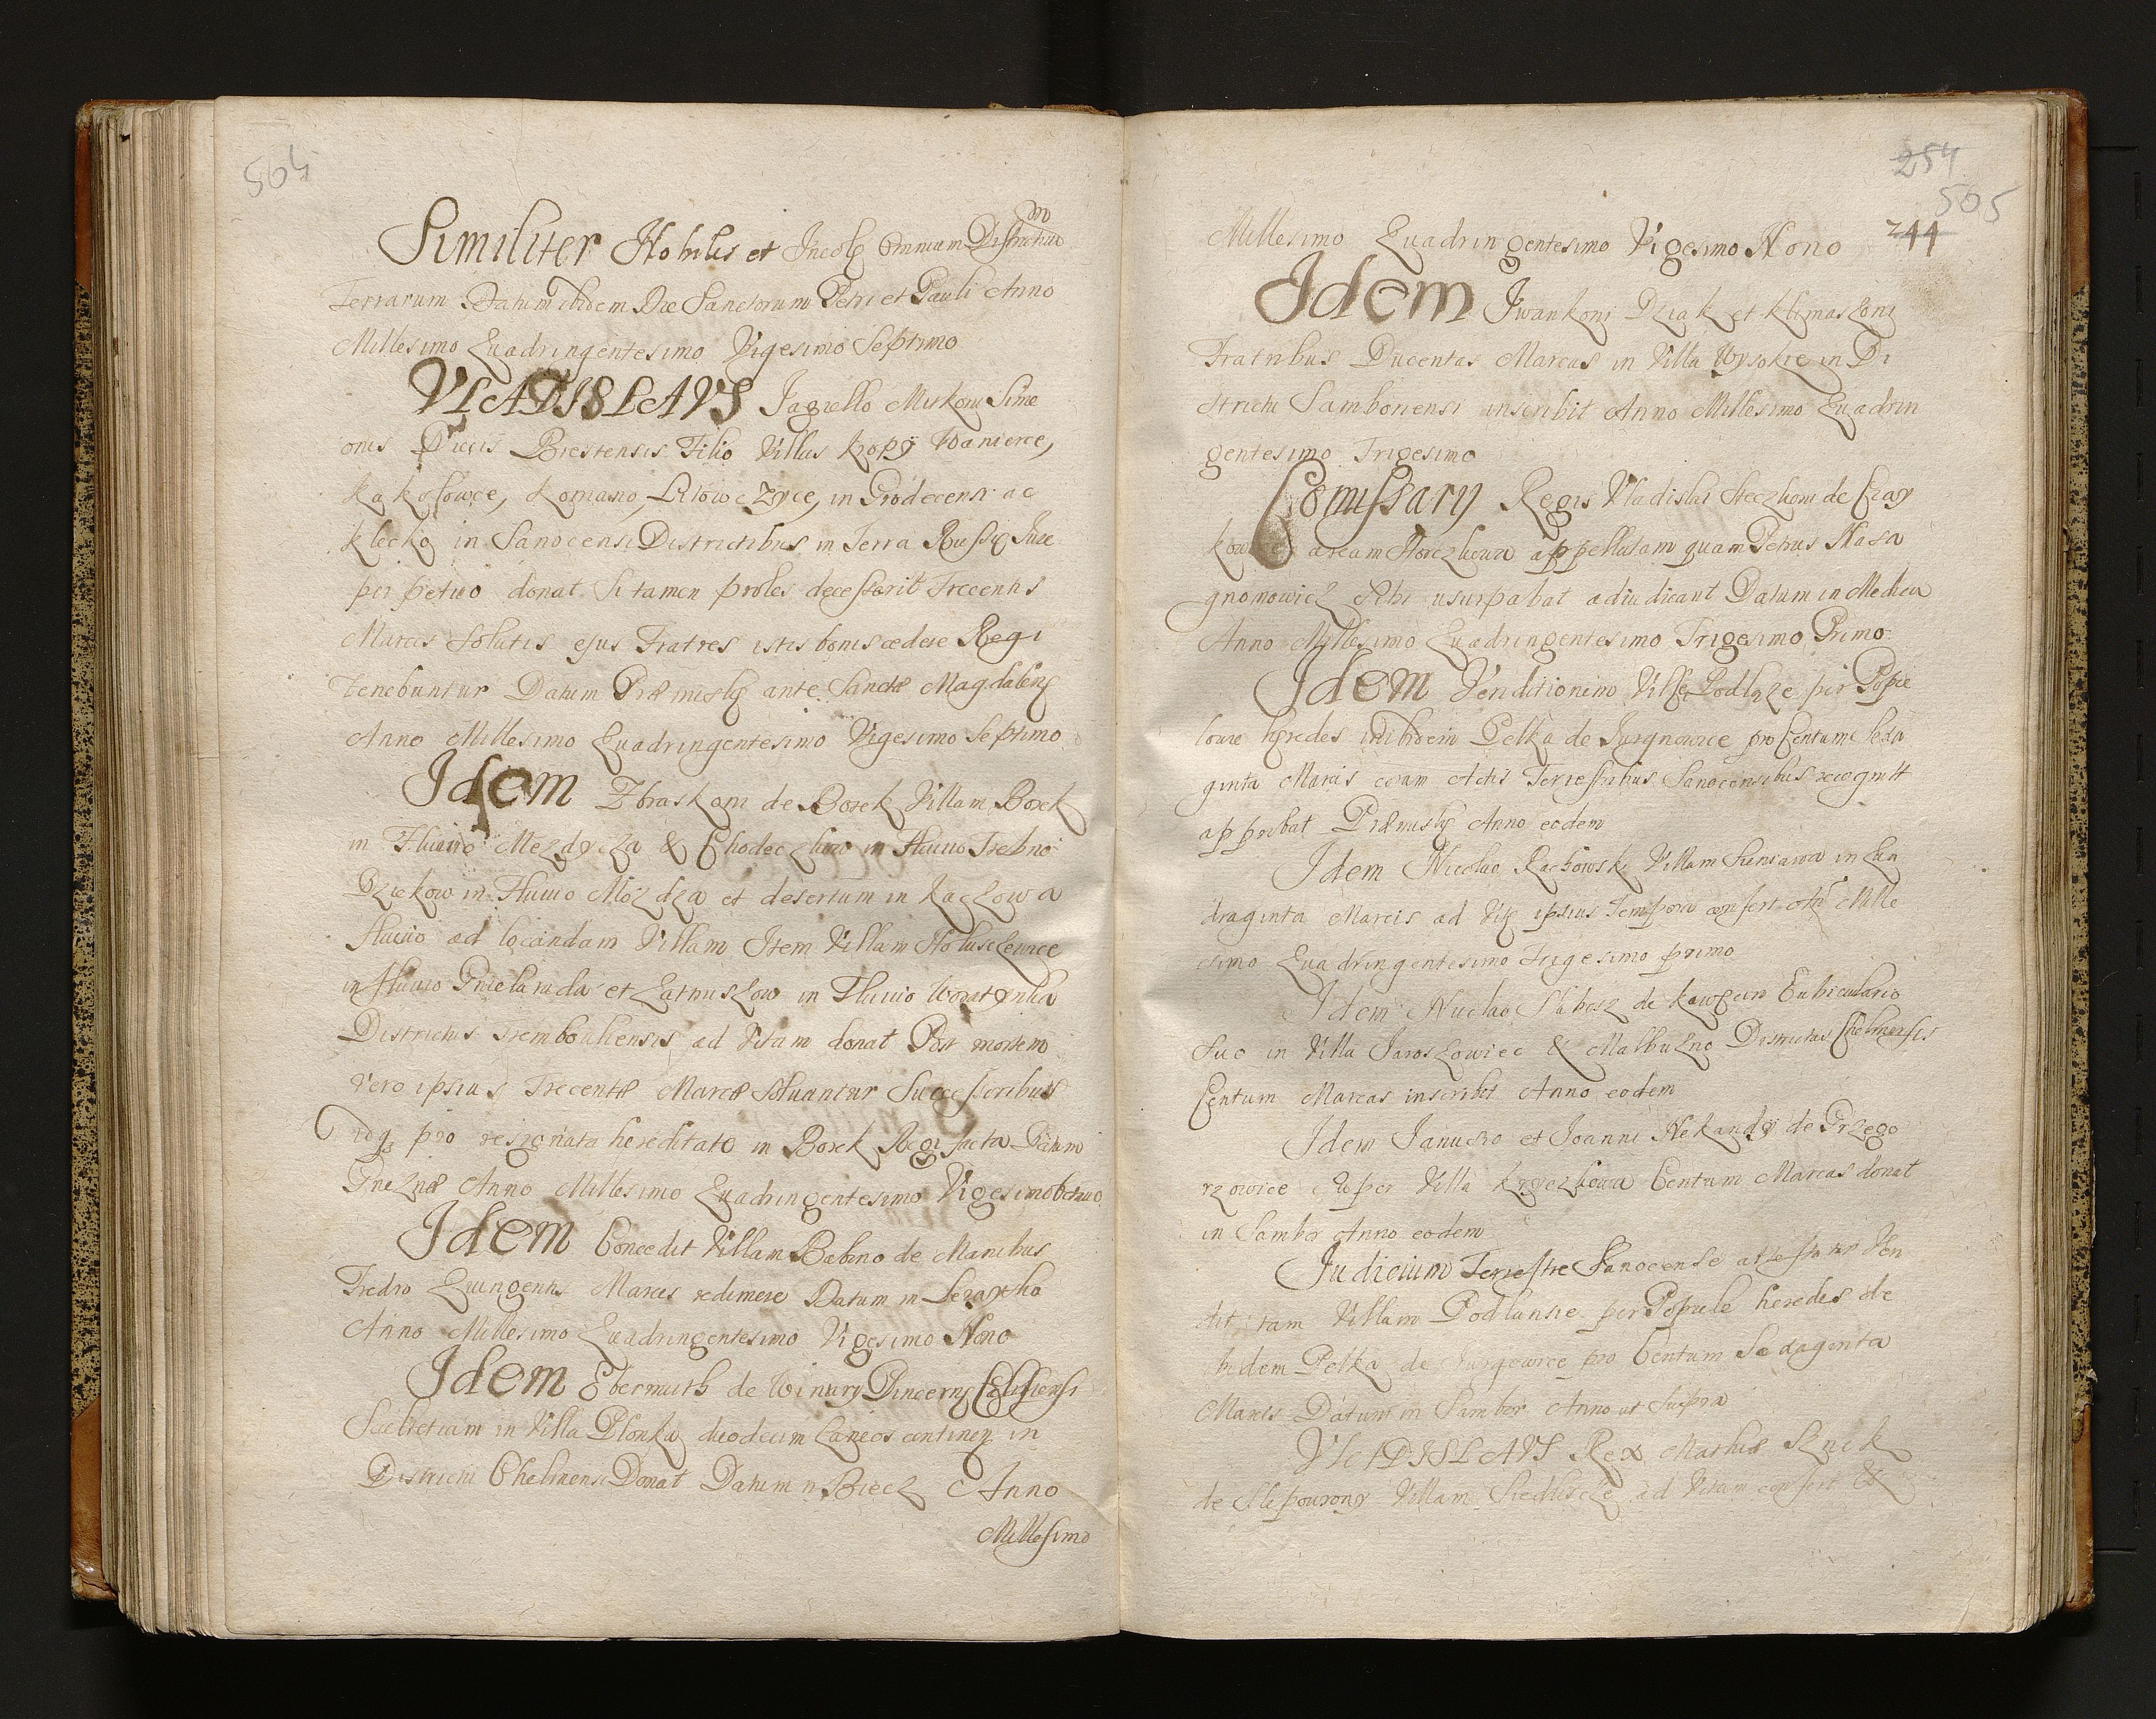 504
Similiter Nobiles et Incolę Omnium Districtuu
Terrarum Datum ibidem Die Sanctorum Petri et Pauli Anno
Millesimo Quadringentesimo Vigesimo Septimo
VLADISLAVS Jagiello Miskoni Sime
onis Ducis Brestensis Filio Villas
Komarno, in Grodecensi ac
Klecko in Sanocensi Districtibus in Terra Russię Iure
perpetuo donat Si tamen proles decesserit Trecentis
Marcis Solutis ejus Fratres istis bonis cedere Regi
tenebuntur Datum Præmislię ante Sanctæ Magdalenę
Anno Millesimo Quadringentesimo Vigesimo Septimo
Idem Zbraskoni de Borek Villam Borek
in Fluvio & in Fluvio Trebno
in Fluvio et desertum in
Fluvio ad locandam Villam Item Villam
in Fluvio et in Fluvio
Districtus Trembouliensis ad Vitam donat Post mortem
vero ipsius Trecentæ Marcæ Solvantur Successoribus
idq3 pro resignata hereditate in Borek Regi facta Datum
Gneznæ Anno Millesimo Quadringentesimo Vigesimo Octavo
Idem Concedit Villam Babino de Manibus
Fredro Quingentis Marcis redimere Datum in
Anno Millesimo Quadringentesimo Vigesimo Nono
Idem Ebermuth de Winary Pincernę
Scultetiam in Villa Plonka duodecim Laneos continen in
Districtu Chelmensi Donat Datum in Biecz Anno
Millesimo
254
505
244
Millesimo Quadringentesimo Vigesimo Nono
Idem Iwankoni Dziak et Klimaszoni
Fratribus Ducentas Marcas in Villa Wysokie in Di
strictu Samboriensi inscribit Anno Millesimo Quadrin
gentesimo Trigesimo
Comissarij Regis Vladislai Steczkoni de
aream appellatam quam Petrus Nasa
gnomowicz Sibi usurpabat adiudicant Datum in Medica
Anno Millesimo Quadringentesimo Trigesimo Primo
Idem Venditionem Villę per Popie
lowe hęredes inibidem Pelka de pro Centum Sexa
ginta Marcis coram Actis Terrestribus Sanocensibus recognitt
approbat Præmislię Anno eodem
Idem Nicolao Villam Sieniawa in Qua
draginta Marcis ad Vitę ipsius Tempora confert Anno Mille
simo Quadringentesimo Trigesimo primo
Idem Nicolao de Cubiculario
Suo in Villa & Districtus Chelmensis
Centum Marcas inscribit Anno eodem
Idem Janusio et Joanni de Przego
rzowice Super Villa Centum Marcas donat
in Sambor Anno eodem
Judicium Terrestre Sanocense attestatur Ven
ditam Villam per Popiele heredes de
ibidem Pelka de pro Centum Sexaginta
Marcis Datum in Sambor Anno ut Supra
VLADISLAVS Rex Mathiæ
de Villam ad Vitam confert &